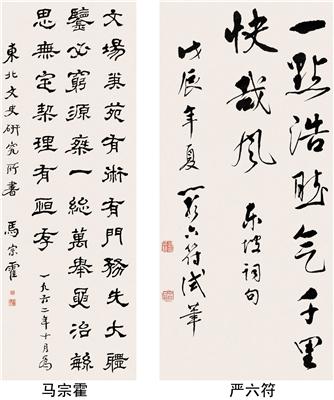 文場筆苑有術有門務先大體
鑒必窮源乘一總萬舉要治緐
思無定契理有恆存 一九六二年十月爲
東北文史研究所書 馬宗霍
马宗霍
一點浩然气千里
快哉風 东坡詞句
戊辰年夏 嚴六符試筆
严六符